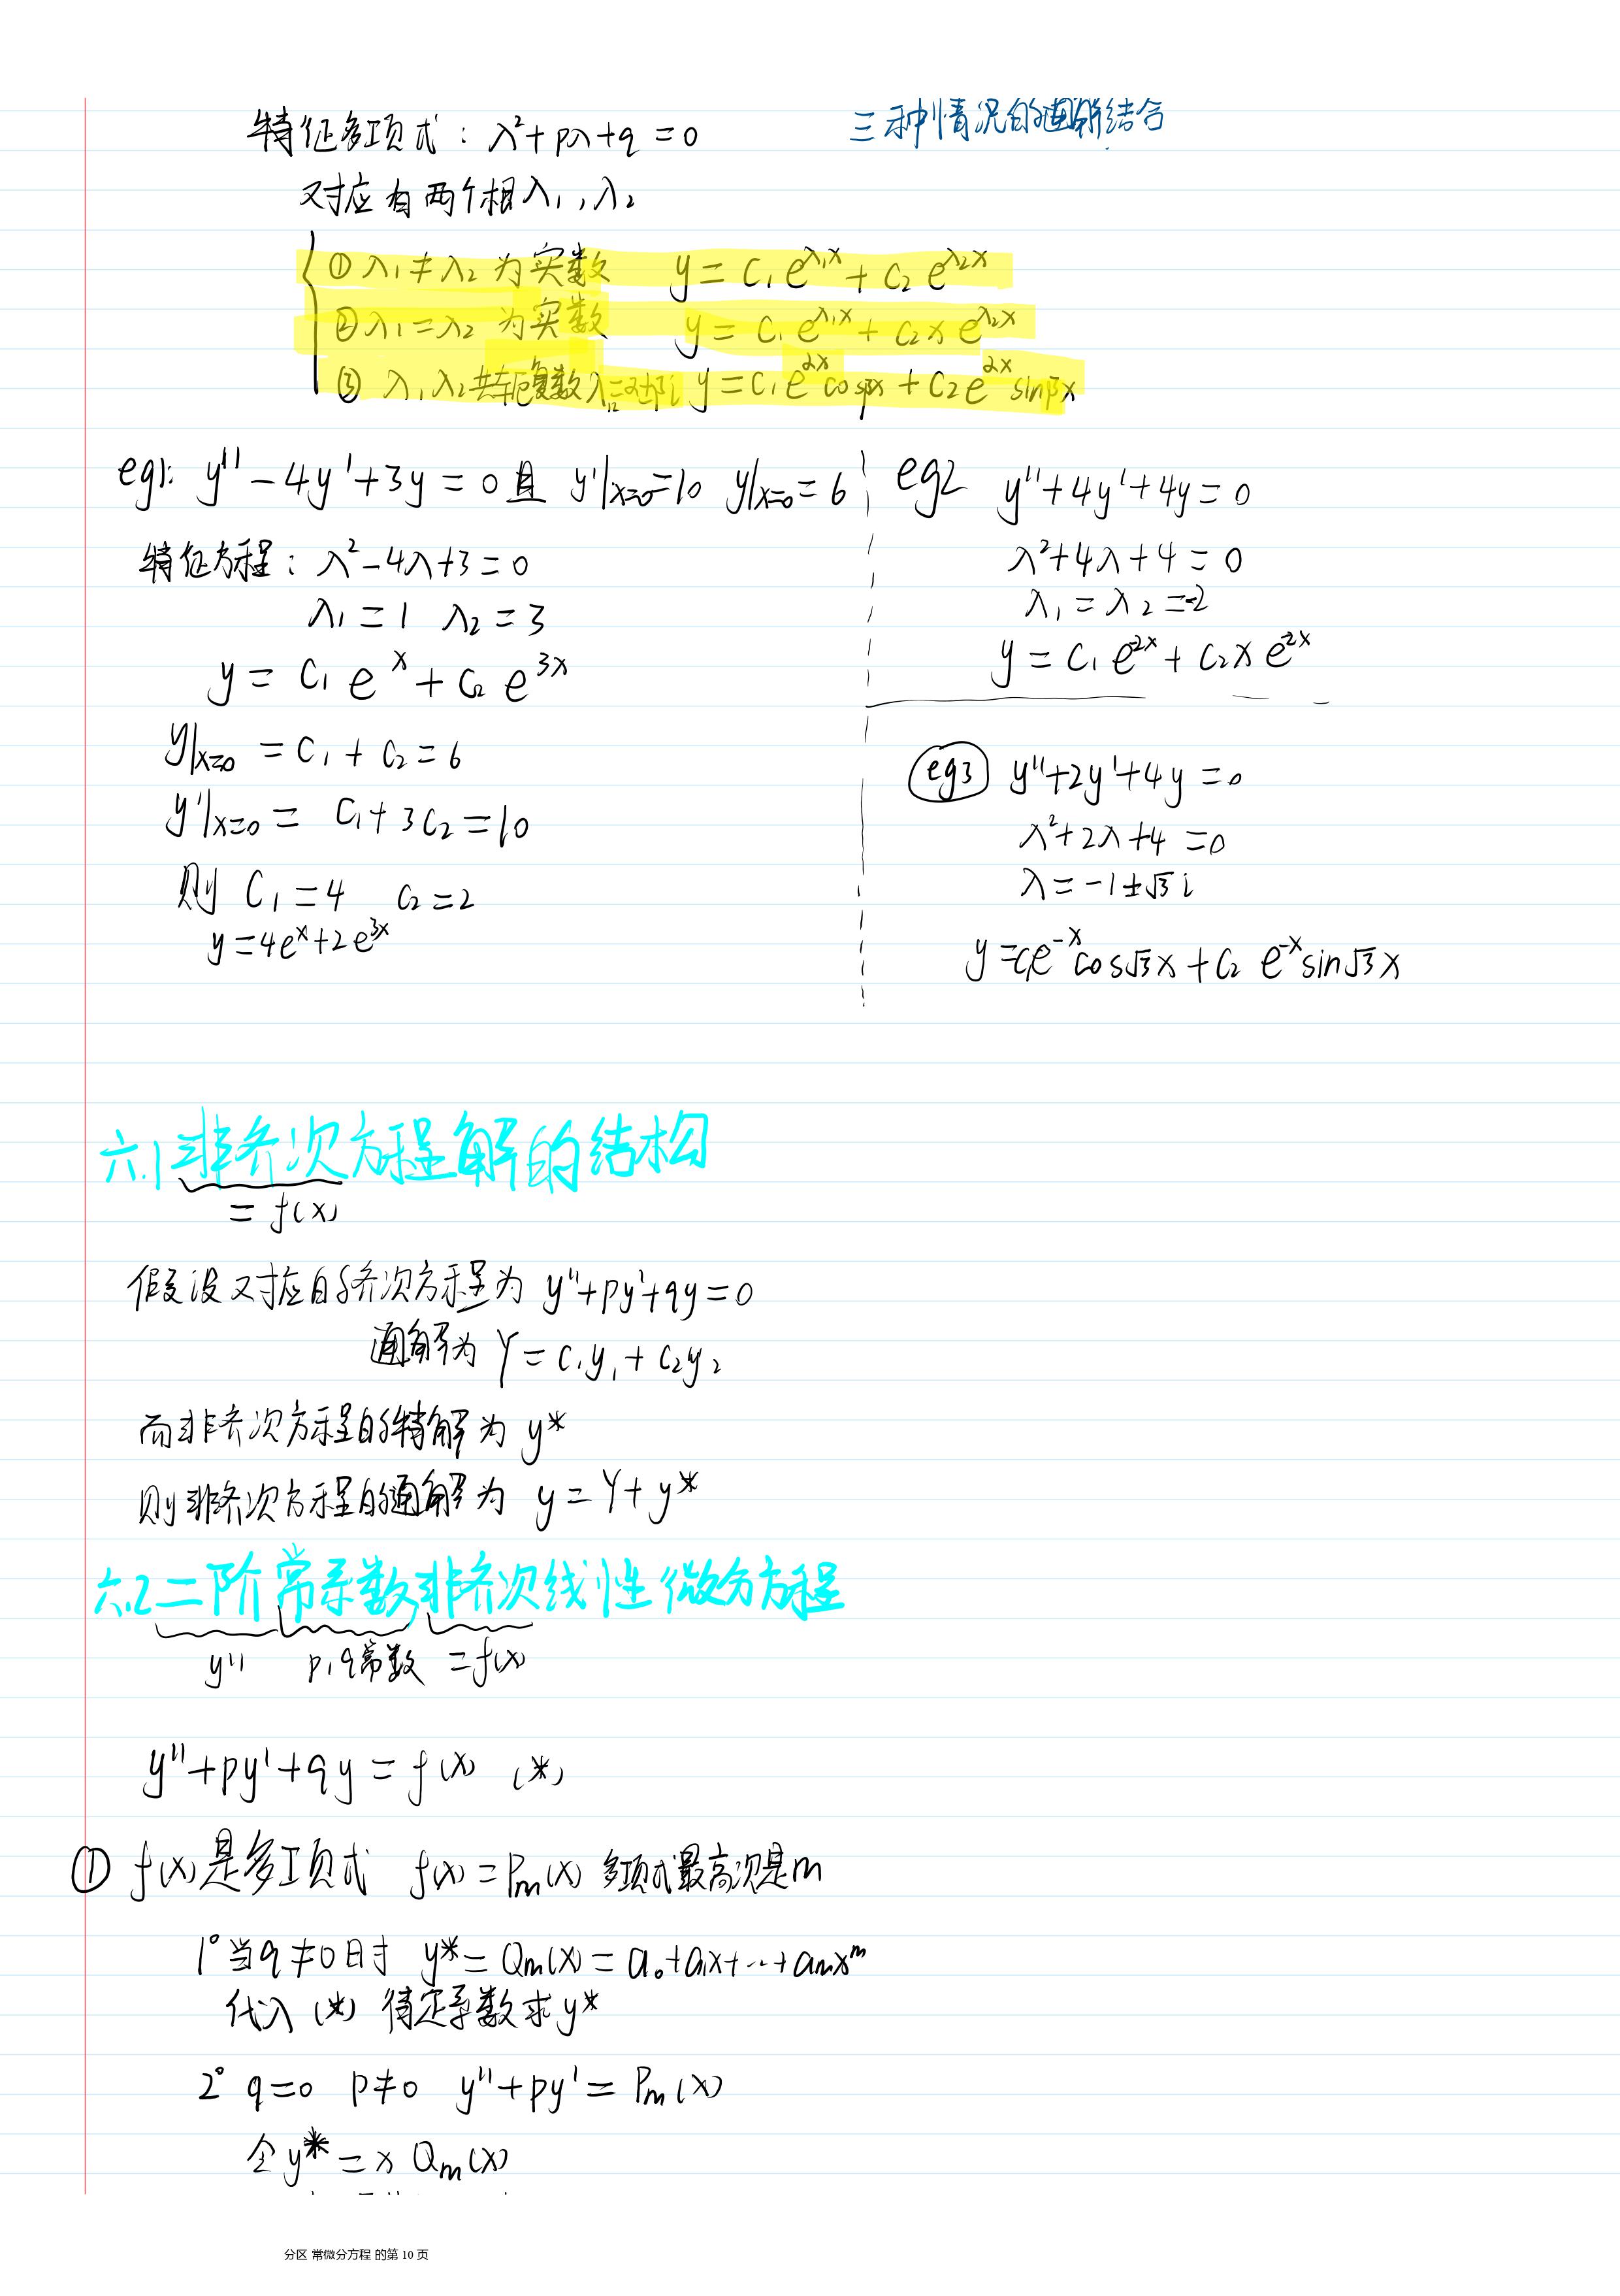 特征多项式：λ²+pλ+q=0
三种情况的通解结合
对应有两个根λ₁,λ₂
①λ₁≠λ₂ 为实数 y=C₁e^{λ₁x}+C₂e^{λ₂x}
②λ₁=λ₂ 为实数 y=C₁e^{λ₁x}+C₂xe^{λ₂x}
③λ₁λ₂共轭复数λ₁₂=α±βi y=C₁e^{αx}cosβx+C₂e^{αx}sinβx
eg1: y''-4y'+3y=0且 y'|x=0=10 y|x=0=6
特征方程：λ²-4λ+3=0
λ₁=1 λ₂=3
y=C₁e^x+C₂e^{3x}
y|x=0=C₁+C₂=6
y'|x=0=C₁+3C₂=10
则 C₁=4 C₂=2
y=4e^x+2e^{3x}
eg2 y''+4y'+4y=0
λ²+4λ+4=0
λ₁=λ₂=-2
y=C₁e^{-2x}+C₂xe^{-2x}
eg3 y''+2y'+4y=0
λ²+2λ+4=0
λ=-1±√3i
y=C₁e^{-x}cos√3x+C₂e^{-x}sin√3x
六.1非齐次方程解的结构
=f(x)
假设对应的齐次方程为 y''+py'+qy=0
通解为 Y=C₁y₁+C₂y₂
而非齐次方程的特解为 y*
则非齐次方程的通解为 y=Y+y*
六.2二阶常系数非齐次线性微分方程
y'' p,q常数 =f(x)
y''+py'+qy=f(x) (*)
① f(x)是多项式 f(x)=Pm(x) 多项式最高次是m
1°当q≠0时 y*=Qm(x)=a₀+a₁x+…+amx^m
代入(*) 待定系数求y*
2° q=0 p≠0 y''+py'=Pm(x)
令y*=xQm(x)
分区 常微分方程 的第 10 页